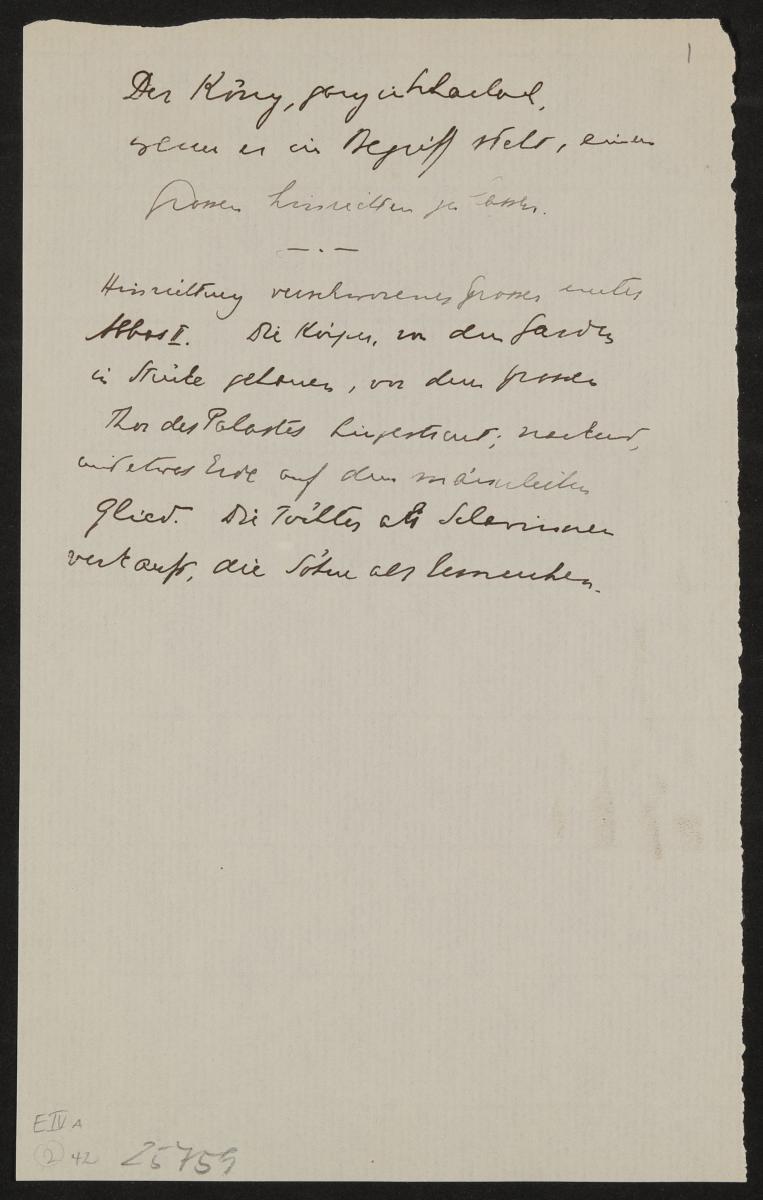 1
Der König, ganz in Scharlach,
wenn er im Begriff steht, einen
Grossen hinrichten zu lassen.
— . —
Hinrichtung verschworener Grosser unter
Abbas II. Die Körper, von den Garden
in Stücke gehauen, vor dem grossen
Thor des Palastes hingestreut; nackend,
mit etwas Erde auf dem männlichen
Glied. Die Töchter als Sclavinnen
verkauft, die Söhne als
E IV A
2 42 25759